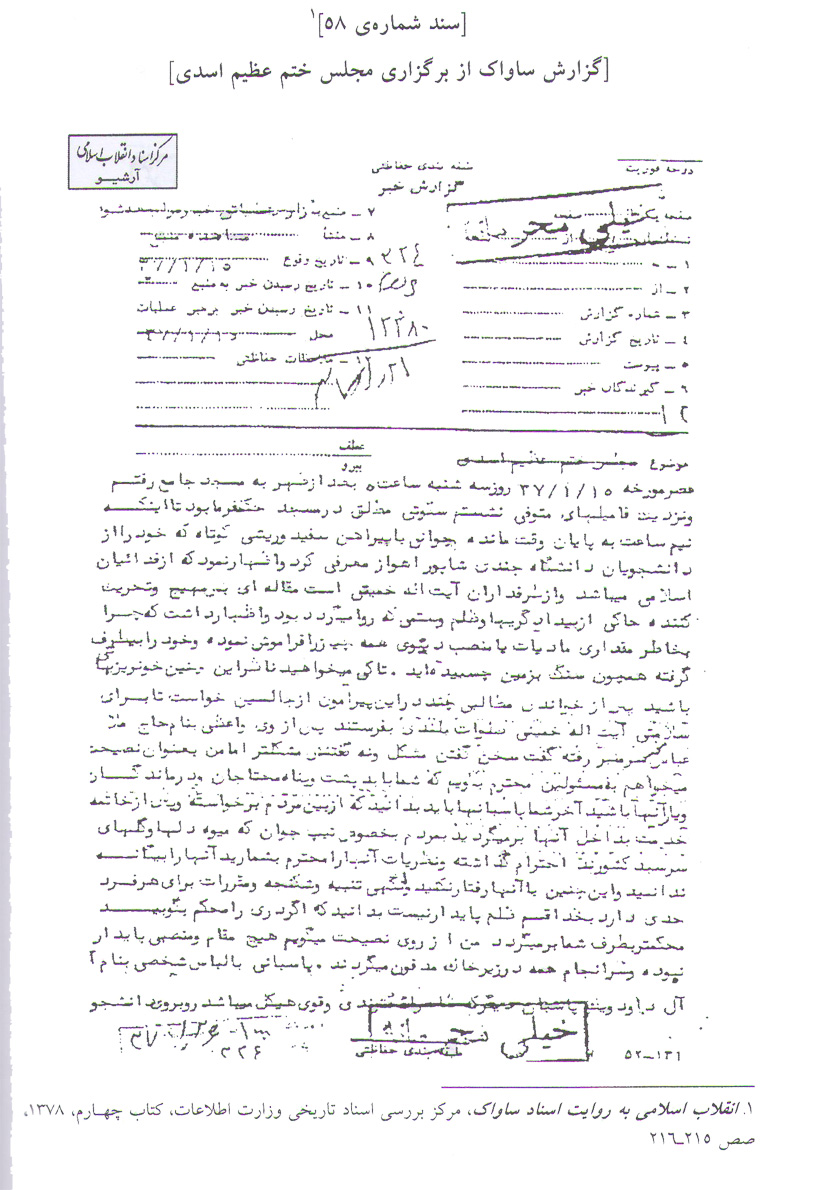 [سند شماره‌ی ۵۸]۱
[گزارش ساواک از برگزاری مجلس ختم عظیم اسدی]
مرکز اسناد انقلاب اسلامی
آرشیو
درجه فوریت
طبقه بندی حفاظتی
گزارش خبر
خیلی محرمانه
صفحه یک از صفحه
نسخه از نسخه
۱ ــ به
۲ ــ از
۳ ــ شماره گزارش
۴ ــ تاریخ گزارش
۵ ــ پیوست
۶ ــ گیرندگان خبر
۷ ــ منبع
۸ ــ منشأ مشاهده منبع
۹ ــ تاریخ وقوع ۳۷/۱/۱۵
۳۲۴
۱۰ ــ تاریخ رسیدن خبر به منبع
۱۱ ــ تاریخ رسیدن خبر برهبر عملیات
محل
۱۲ ــ ملاحظات حفاظتی
موضوع مجلس ختم عظیم اسدی
عطف
پیرو
عصر مورخه ۳۷/۱/۱۵ روز سه شنبه ساعت ۵ بعد از ظهر به مسجد جامع رفتم
و نزدیک فامیلهای متوفی نشستم سکوتی مطلق در مسجد حکمفرما بود تا اینکه
نیم ساعت به پایان وقت مانده جوانی با پیراهن سفید و ریشی کوتاه که خود را از
دانشجویان دانشگاه جندی شاپور اهواز معرفی کرد و اظهار نمود که از فدائیان
اسلامی میباشد و از طرفداران آیت اله خمینی است مقاله ای مهیج و تحریک
کننده حاکی از بیدادگریها و ظلم و ستمی که روا میگردد بود و اظهار داشت که چرا
بخاطر مقداری مادیات یا منصب دنیوی همه چیز را فراموش نموده و خود را بیطرف
گرفته همچون سنگ بزمین چسبیده اید . تا کی میخواهید ناظر این چنین خونریزیهائی
باشید پس از خواندن مطالبی چند در این پیرامون از جالسین خواست تا برای
سلامتی آیت اله خمینی صلوات بلندی بفرستند پس از وی واعظی بنام حاج ملا
عباس بر سر منبر رفته گفت سخن گفتن مشکل و نه گفتنش مشکلتر اما من بعنوان نصیحت
میخواهم به مسئولین محترم بگویم که شما باید پشت و پناه محتاجان و درماندگان
و یار آنها باشید آخر شما پاسبانها باید بدانید که از بین مردم برخواسته و پس از خاتمه
خدمت بداخل آنها برمیگردید بمردم بخصوص تیپ جوان که میوه دلها و گلهای
سرسبد کشورند احترام گذاشته و نظریات آنها را محترم بشمارید آنها را بیگانه
ندانید و این چنین با آنها رفتار نکنید تنبیه و شکنجه و مقررات برای هر فرد
حدی دارد بخدا قسم ظلم پایدار نیست بدانید که اگر دری را محکم بکوبید
محکمتر بطرف شما برمیگردد من از روی نصیحت میگویم هیچ مقام و منصبی پایدار
نبوده و سرانجام همه در زیر خاک مدفون میگردند . پاسبانی با لباس شخصی بنام
آل داود و قوی هیکل میباشد روبروی دانشجو
خیلی محرمانه
طبقه بندی حفاظتی
۳۲۶
۱۳۱ــ۵۲
۱. انقلاب اسلامی به روایت اسناد ساواک، مرکز بررسی اسناد تاریخی وزارت اطلاعات، کتاب چهارم، ۱۳۷۸،
صص ۲۱۵ــ۲۱۶